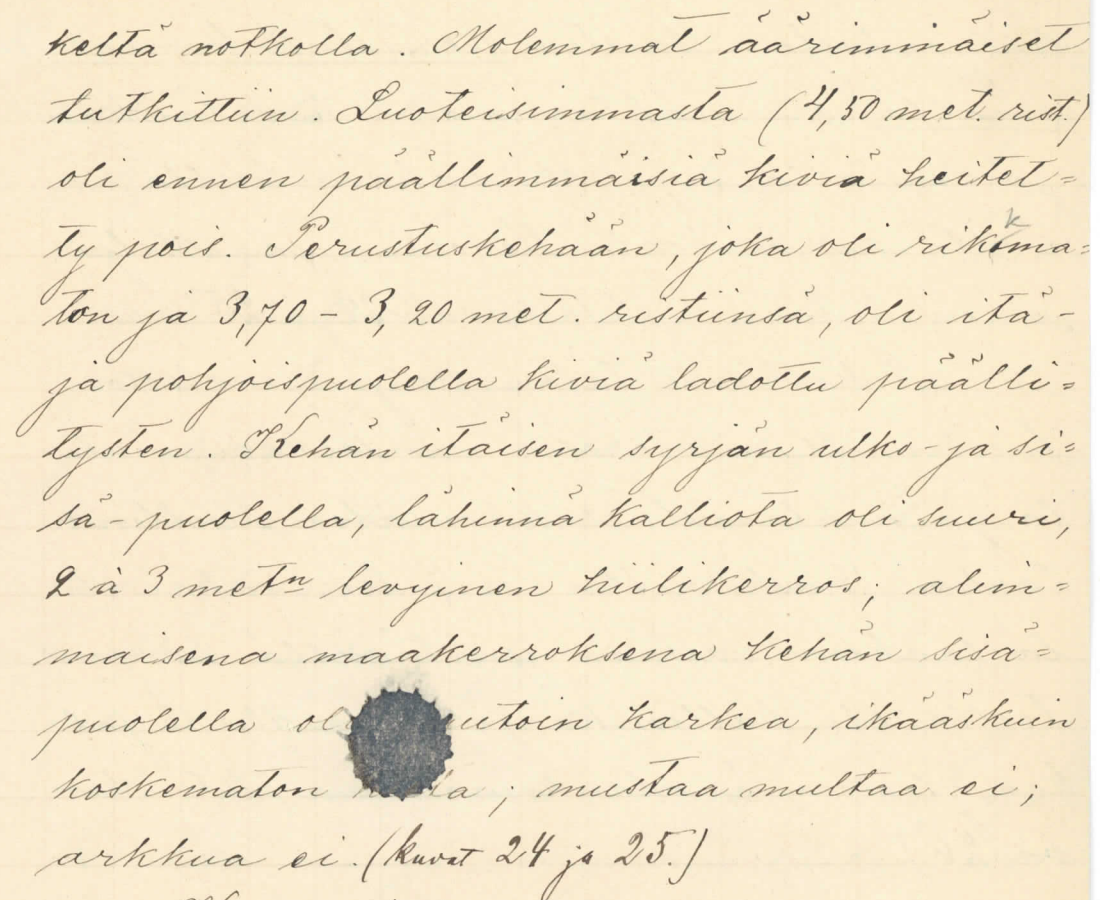 keltä notkolla. Molemmat äärimmäiset
tutkittiin. Luoteisimmasta (4,50 met. rist.)
oli ennen päällimmäisiä kiviä heitet=
ty pois. Perustuskehään, joka oli rikkoma=
ton ja 3,70 - 3,20 met. ristiinsä, oli itä-
ja pohjoispuolella kiviä ladottu päälli=
tysten. Kehän itäisen syrjän ulko- ja si=
sä-puolella, lähinnä kalliota oli suuri,
2 à 3 metn levyinen hiilikerros; alim=
maisena maakerroksena kehän sisä=
puolella karkea, ikääskuin
koskematon ; mustaa multaa ei;
arkkua ei. (kuvat 24 ja 25.)